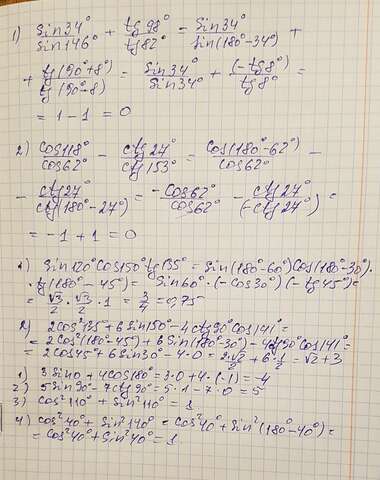 1) sin34°/sin146° + tg98°/tg82° = sin34°/sin(180°-34°) +
+ tg(90°+8°)/tg(90°-8) = sin34°/sin34° + (-tg8°)/tg8° =
= 1 - 1 = 0
2) cos118°/cos62° - ctg27°/ctg153° = cos(180°-62°)/cos62° -
- ctg27°/ctg(180°-27°) = -cos62°/cos62° - ctg27°/(-ctg27°) =
= -1 + 1 = 0
1) sin120°cos150°tg135° = sin(180°-60°)cos(180°-30°)·
·tg(180°-45°) = sin60°·(-cos30°)(-tg45°) =
= √3/2 · √3/2 · 1 = 3/4 = 0,75
2) 2cos²135°+6sin150°-4ctg90°cos141° =
= 2cos²(180°-45°)+6sin(180°-30°)-4tg90°cos141° =
= 2cos45°+6sin30°-4·0 = 2·√2/2 + 6·1/2 = √2+3
1) 3sin0+4cos180° = 3·0+4·(-1) = -4
2) 5sin90°-7ctg90° = 5·1-7·0 = 5
3) cos²110° + sin²110° = 1
4) cos²40°+sin²140° = cos²40°+sin²(180°-40°) =
= cos²40°+sin²40° = 1